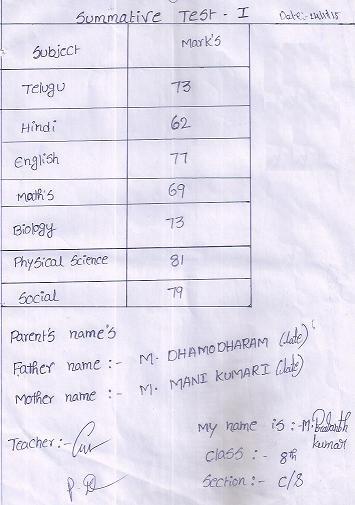 Summative Test - I
Date:-
Subject Mark's
Telugu 73
Hindi 62
English 77
Math's 69
Biology 73
Physical Science 81
Social 79
Parent's name's
Father name :- M. DHAMODHARAM (late)
Mother name :- M. MANI KUMARI (late)
My name is :- M. Prashanth
kumar
Teacher:-
Class :- 8th
Section :- C/8